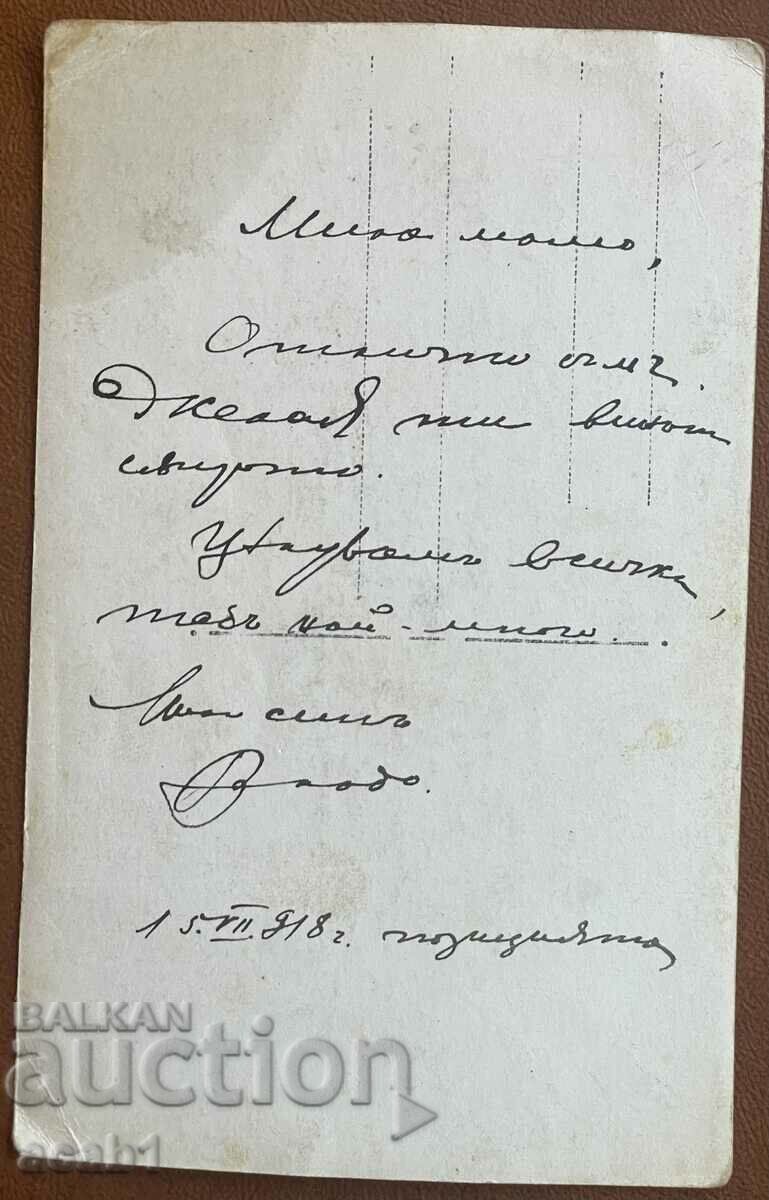 Мила мамо,
Отлично съмъ.
Желая ти винаги
същото.
Цѣлувамъ всички,
тебъ най-много...
Твой синъ
Владо.
15.VII.918 г. позицията
BALKAN
auction
acab1